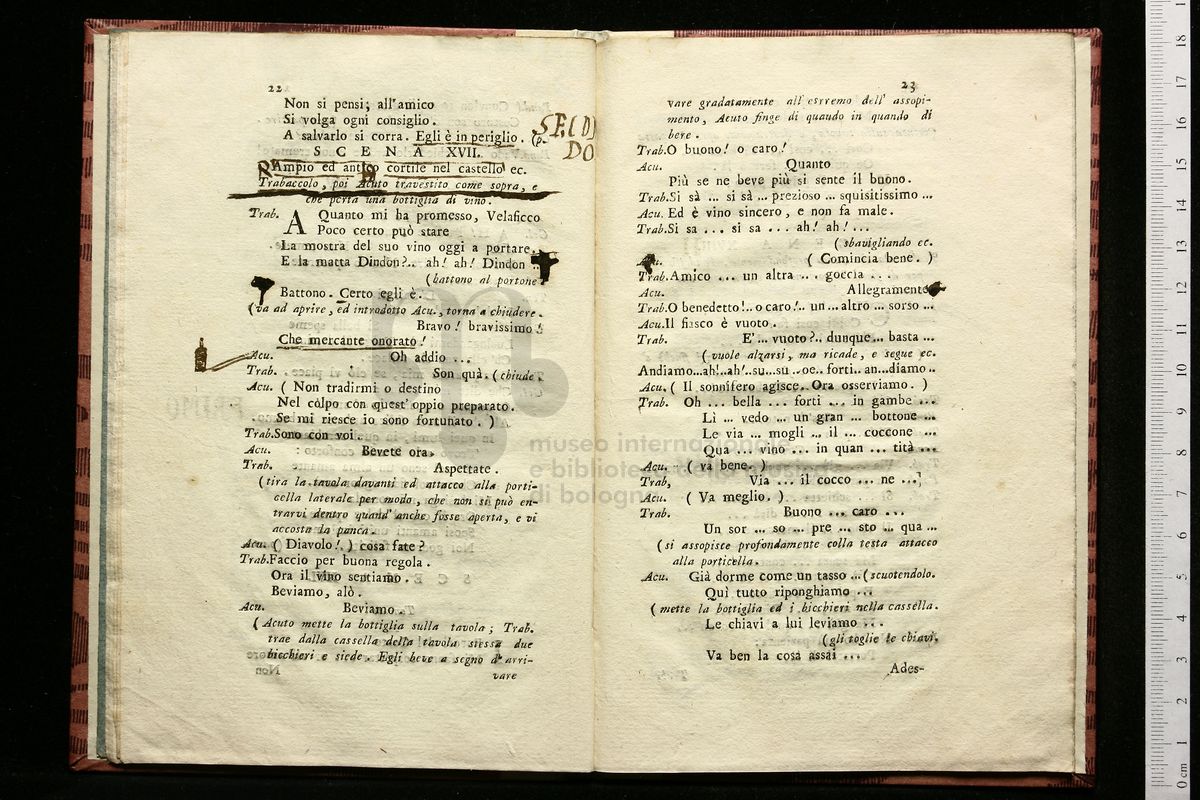 22
Non si pensi; all'amico
Si volga ogni consiglio.
A salvarlo si corra. Egli è in periglio. (p.
SECO
DO
SCENA XVII.
Ampio ed antico cortile nel castello ec.
Trabaccolo, poi Acuto travestito come sopra, e
che porta una bottiglia di vino.
Trab. A Quanto mi ha promesso, Velaficco
Poco certo può stare
La mostra del suo vino oggi a portare.
E la matta Dindon?.. ah! ah! Dindon ..
(battono al portone.
Battono. Certo egli è.
(va ad aprire, ed introdotto Acu., torna a chiudere.
Bravo! bravissimo!
Che mercante onorato!
Acu. Oh addio ...
Trab. Son quà. (chiude.
Acu. (Non tradirmi o destino
Nel colpo con quest'oppio preparato.
Se mi riesce io sono fortunato.)
Trab. Sono con voi.
Acu. Bevete ora.
Trab. Aspettate.
(tira la tavola davanti ed attacco alla porti-
cella laterale per modo, che non si può en-
trarvi dentro quand'anche fosse aperta, e vi
accosta la panca.
Acu. (Diavolo!.) cosa fate?
Trab. Faccio per buona regola.
Ora il vino sentiamo.
Beviamo, alò.
Acu. Beviamo.
(Acuto mette la bottiglia sulla tavola; Trab.
trae dalla cassella della tavola stessa due
bicchieri e siede. Egli beve a segno d'arri-
vare
23
vare gradatamente all'estremo dell'assopi-
mento, Acuto finge di quando in quando di
bere.
Trab. O buono! o caro!
Acu. Quanto
Più se ne beve più si sente il buono.
Trab. Si sà ... si sà ... prezioso ... squisitissimo ...
Acu. Ed è vino sincero, e non fa male.
Trab. Si sa ... si sa ... ah! ah! ...
(sbavigliando ec.
Acu. (Comincia bene.)
Trab. Amico ... un altra ... goccia ...
Acu. Allegramente
Trab. O benedetto!.. o caro!.. un ... altro ... sorso ...
Acu. Il fiasco è vuoto.
Trab. E' ... vuoto?.. dunque... basta ...
(vuole alzarsi, ma ricade, e segue ec.
Andiamo...ah!..ah!..su...su..oe.. forti.. an...diamo..
Acu. (Il sonnifero agisce. Ora osserviamo.)
Trab. Oh ... bella ... forti ... in gambe ...
Lì ... vedo ... un gran ... bottone ...
Le via ... mogli ... il ... coccone ...
Qua ... vino ... in quan ... tità ...
Acu. (va bene.)
Trab, Via ... il cocco ... ne ...
Acu. (Va meglio.)
Trab. Buono ... caro ...
Un sor ... so ... pre ... sto ... qua ...
(si assopisce profondamente colla testa attacco
alla porticella.
Acu. Già dorme come un tasso ... (scuotendolo.
Quì tutto riponghiamo ...
(mette la bottiglia ed i bicchieri nella cassella.
Le chiavi a lui leviamo ...
(gli toglie le chiavi.
Va ben la cosa assai ...
Ades-
museo internazionale
e biblioteca della musica
di bologna